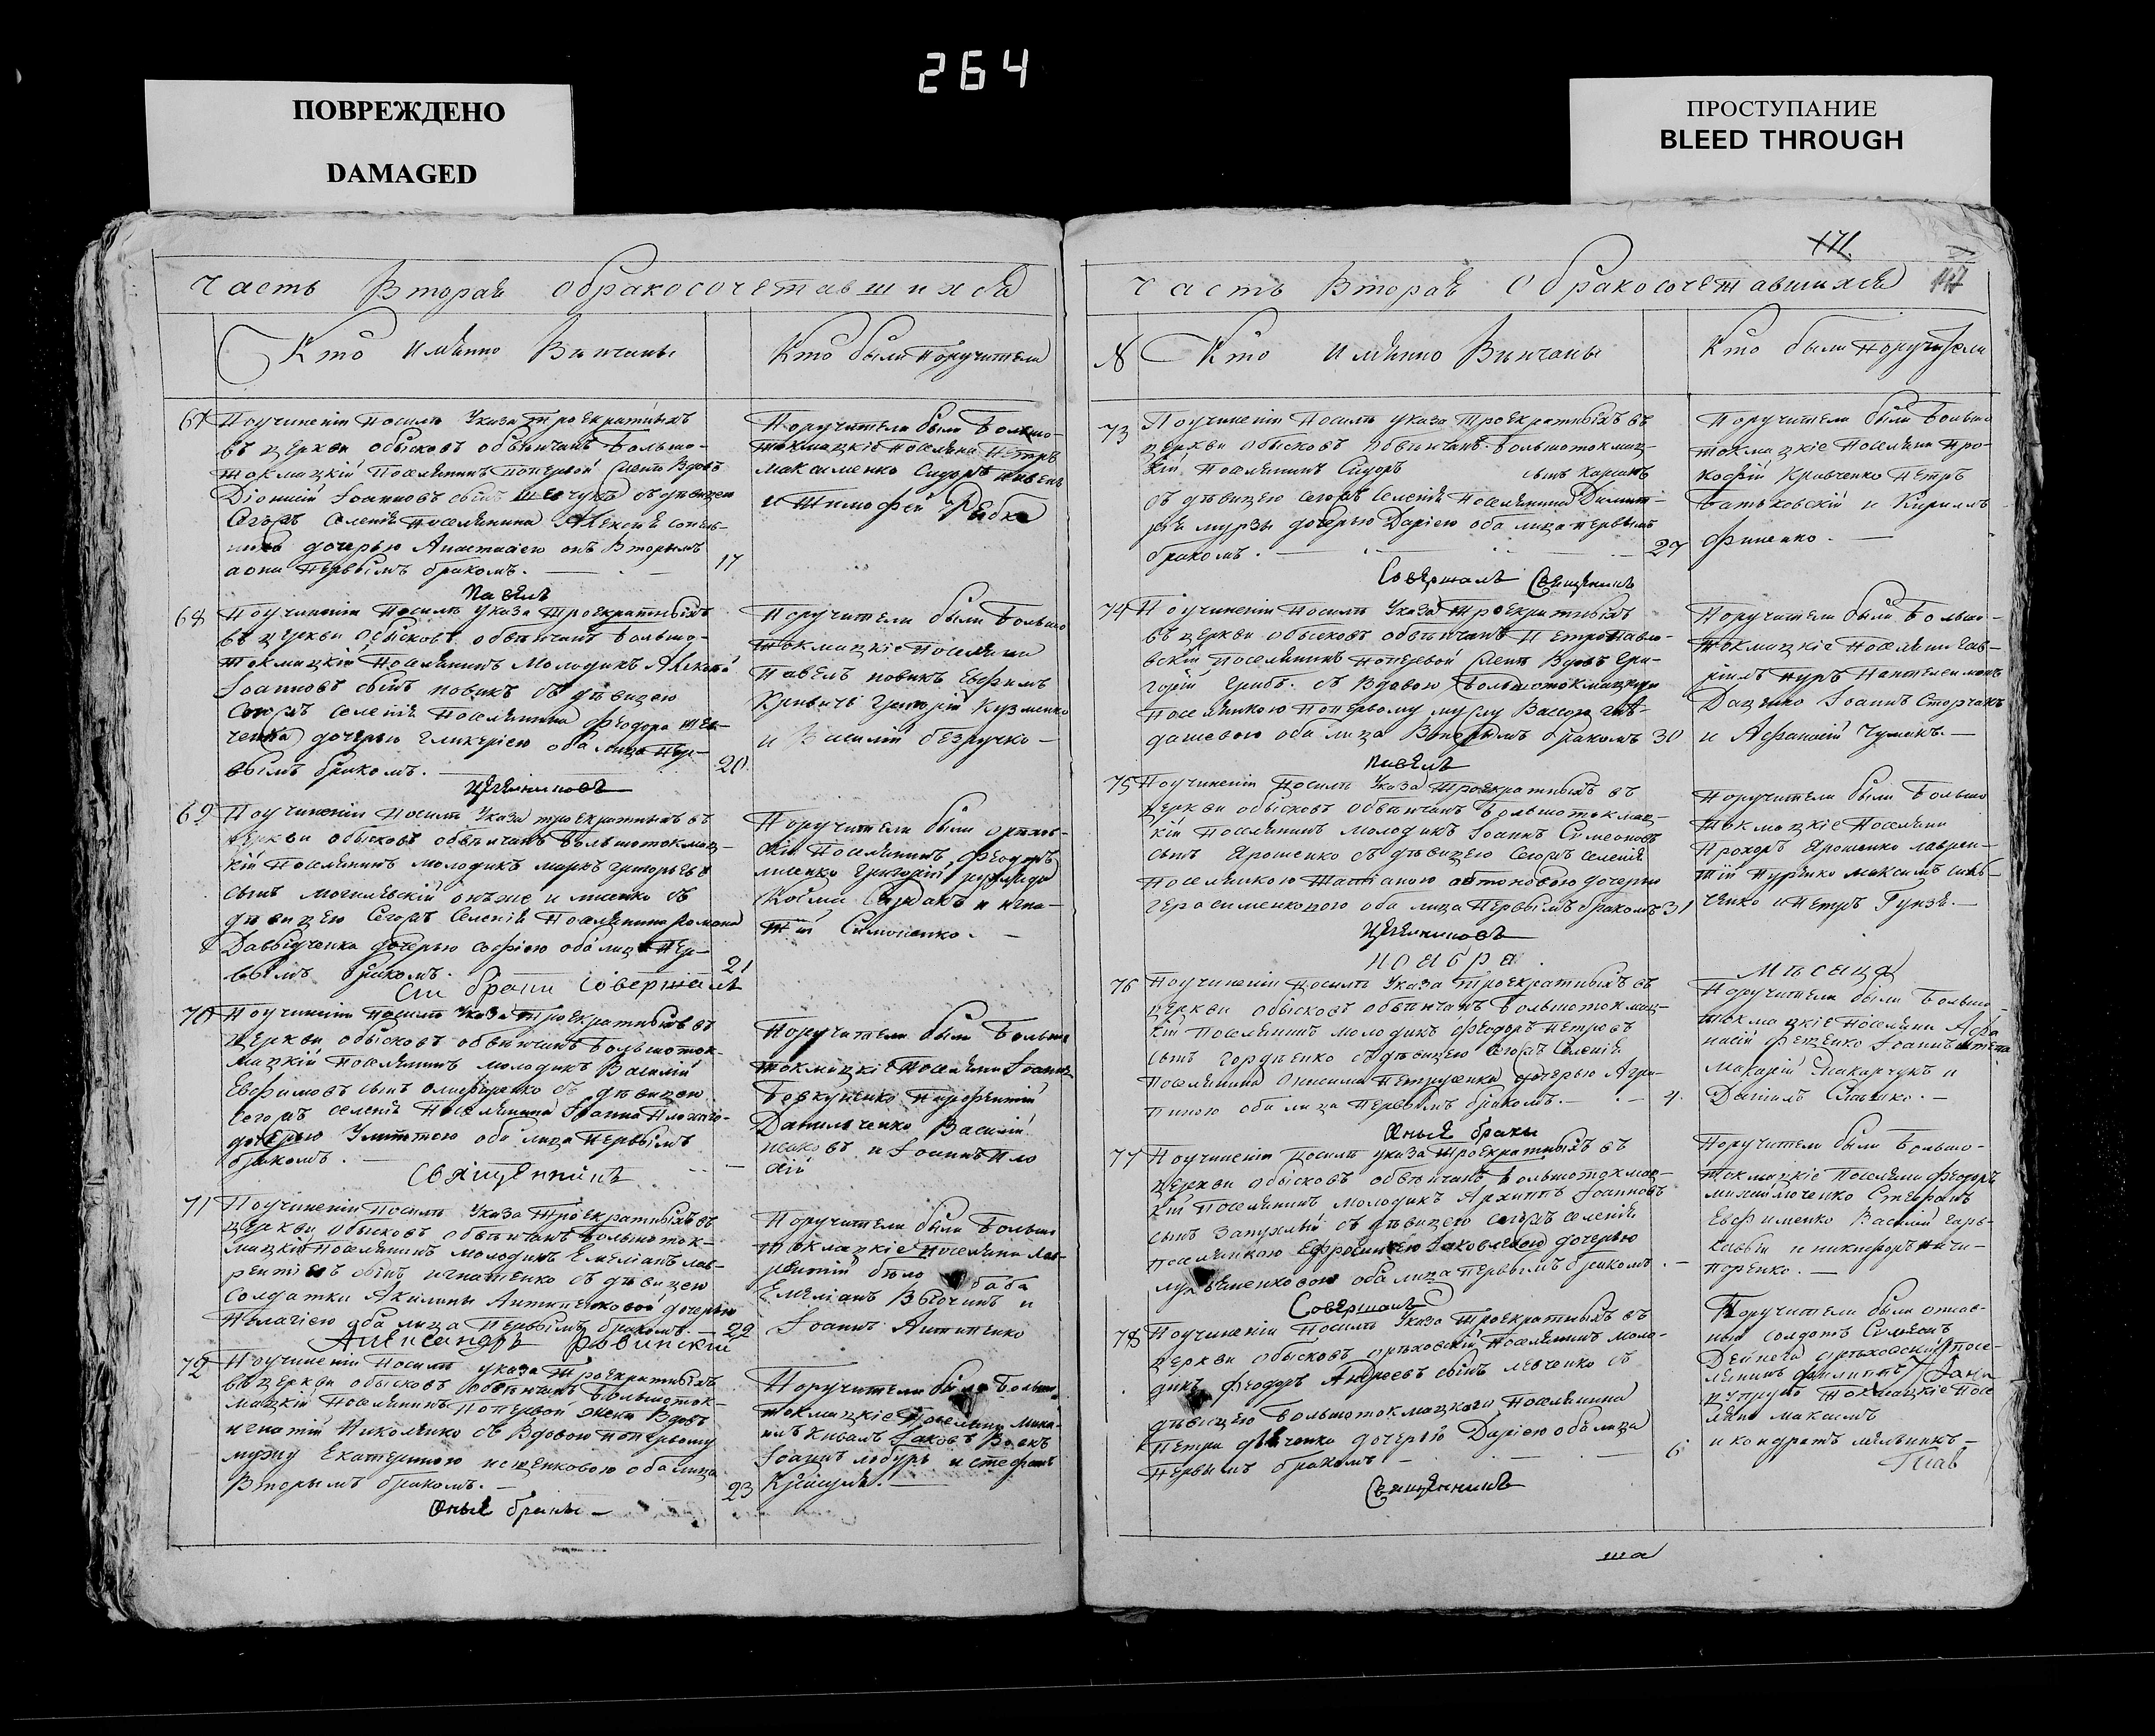 264
ПОВРЕЖДЕНО
DAMAGED
ПРОСТУПАНИЕ
BLEED THROUGH
Часть Вторая обракосочетавшихся
Кто имѣнно Вѣнчаны
Кто были поручители
67 Поучиненіи посилѣ Указа троекратныхъ
въ церкви обысковъ обвѣнчанъ Большо-
токмацкій поселянинъ попервой женѣ Вдовъ
Діонисій Іоанновъ сынъ съ дѣвицею
Сегожъ Селенія поселянина Алексія
дочерью Анастасіею онъ Вторымъ
аона первымъ бракомъ. 17
Поручители были Большо-
токмацкіе поселяне Петръ
Максименко Сидоръ
и Тимофей Рябка
Павелъ
68 Поучиненіи посилѣ Указа троекратныхъ
въ церкви обысковъ обвѣнчанъ Больше-
токмацкій поселянинъ Молодикъ Алексѣй
Іоанновъ сынъ новикъ съ дѣвицею
Сегожъ селенія поселянина Феодора Шев-
ченка дочерью Гликеріею оба лица пер-
вымъ бракомъ. 20
Поручители были Больше
токмацкіе поселяне
Павелъ новикъ Евфимъ
Григорій Кузменко
и Василій безручко
69 Поучиненіи посилѣ Указа троекратныхъ въ
церкви обысковъ обвѣнчанъ Большотокмац-
кій поселянинъ молодикъ марко Григорьевъ
сынъ могилевскій онъже и лисенко съ
дѣвицею Сегожъ Селенія поселянина Романа
Давыдченка дочерью Софіею оба лица пер-
вымъ бракомъ. 21
Поручители были орѣхов-
скій поселянинъ Феодоръ
лисенко Григорій
Косма и игна-
тій Симоненко.
Сіи браки Совершалъ
70 Поучиненіи посилѣ Указа троекратныхъ въ
церкви обысковъ обвѣнчанъ Большоток-
мацкій поселянинъ молодикъ Василій
Евфимовъ сынъ онофріенко съ дѣвицею
Сегожъ селенія поселянина Іоанна плохаго
дочерью Улитою оба лица первымъ
бракомъ.
Поручители были Больше
токмацкіе поселяне Іоаннъ
Беркуненко Парфентій
Данильченко Василій
и Іоаннъ пло
хій
Священникъ
71 Поучиненіи посилѣ Указа троекратныхъ въ
церкви обысковъ обвѣнчанъ Большоток-
мацкій поселянинъ молодикъ Емеліанъ лав-
рентіевъ сынъ игнатенко съ дѣвицею
Солдатки Акилины Антипенковой дочерью
Пелагіею оба лица первымъ бракомъ. 22
Поручители были Больше
токмацкіе поселяне лав-
рентій бѣло баба
Емеліанъ Высочинъ и
Іоаннъ Антипенко
Александръ Ровинскій
72 Поучиненіи посилѣ указа троекратныхъ
въ церкви обысковъ обвѣнчанъ Большоток-
мацкій поселянинъ попервой женѣ Вдовъ
игнатій Николенко съ Вдовою попервому
мужу Екатериною ищенковою оба лица
Вторымъ бракомъ. 23
Поручители были Больше
токмацкіе поселяне миха-
илъ Іаковъ Вовкъ
Іоаннъ и стефанъ
Оные браки
171
Часть Вторая обракосочетавшихся
№ Кто имѣнно Вѣнчаны
Кто были поручители
73 Поучиненіи посилѣ указа троекратныхъ въ
церкви обысковъ обвѣнчанъ Большотокмац-
кій поселянинъ Сидоръ сынъ
съ дѣвицею сегожъ селенія поселянина Димит-
рія мурзы дочерью Даріею оба лица первымъ
бракомъ. 27
Поручители были Больше
токмацкіе поселяне Про-
кофій Кравченко Петръ
Батьковскій и Кириллъ
Фисенко.
Совершалъ Священникъ
74 Поучиненіи посилѣ Указа троекратныхъ
въ церкви обысковъ обвѣнчанъ Петропавло-
вскій поселянинъ попервой женѣ Вдовъ Гри-
горій Грибъ съ Вдовою Большотокмацкою
поселянкою попервому мужу Вассою
оба лица Вторымъ бракомъ 30
Поручители были Больше-
токмацкіе поселяне Гав-
ріилъ Пантелеимонъ
Даценко Іоаннъ Сторчакъ
и Афанасій Чумакъ.
Павелъ
75 Поучиненіи посилѣ Указа троекратныхъ въ
церкви обысковъ обвѣнчанъ Большотокмац-
кій поселянинъ молодикъ Іоаннъ Симеоновъ
сынъ Ярошенко съ дѣвицею Сегожъ селенія
поселянкою Татіаною дочерью
герасименковою оба лица первымъ бракомъ 31
Поручители были Больше
токмацкіе поселяне
Прохоръ Ярошенко лаврен-
тій максимъ
и Петръ Гунзя.
ноября
Мѣсяца
76 Поучиненіи посилѣ Указа троекратныхъ въ
церкви обысковъ обвѣнчанъ Большотокмац-
кій поселянинъ молодикъ Феодоръ Петровъ
сынъ Гордѣенко съ дѣвицею Сегожъ селенія
поселянина Онисима Петрусенка дочерью Агри-
пиною оба лица первымъ бракомъ. 4.
Поручители были Больше
токмацкіе поселяне Афа
насій Феценко Іоаннъ
Макарій Макарчукъ и
Даніилъ
Оные браки
77 Поучиненіи посилѣ указа троекратныхъ въ
церкви обысковъ обвѣнчанъ Большотокмац-
кій поселянинъ молодикъ Архиппъ Іоанновъ
сынъ съ дѣвицею сегожъ селенія
поселянкою Ефросиніею Іаковлевою дочерью
оба лица первымъ бракомъ.
Поручители были Больше-
токмацкіе поселяне Феодоръ
Стефанъ
Евфименко Василій
и никифоръ ничи-
поренко.
Совершалъ
78 Поучиненіи посилѣ Указа троекратныхъ въ
церкви обысковъ орѣховскій поселянинъ моло-
дикъ Феодоръ Андреевъ сынъ левченко съ
дѣвицею Большотокмацкаго поселянина
Петра дочерью Даріею оба лица
первымъ бракомъ 6
Поручители были отпав-
ный солдатъ Симеонъ
Дейнега орѣховскій посе-
лянинъ филиппъ
токмацкіе посе
ляне максимъ
и кондратъ мельникъ
Священникъ
Пав
ша